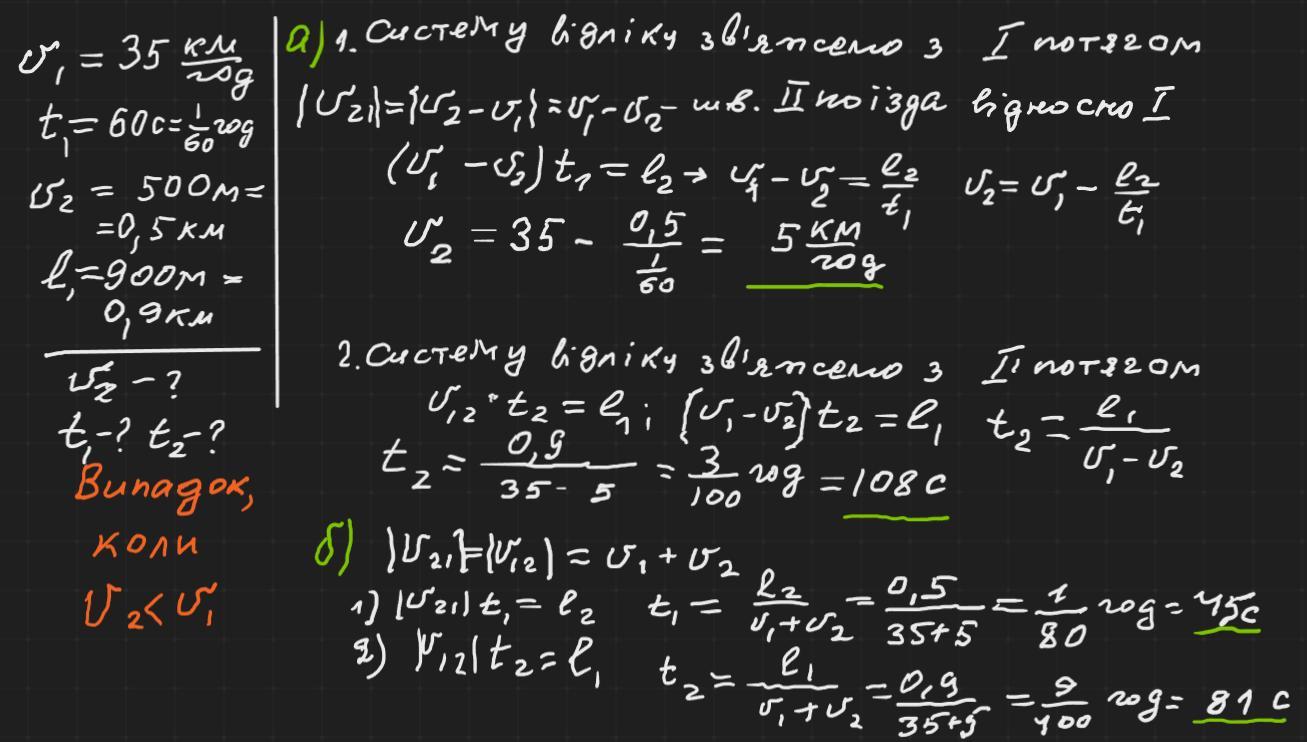 v₁ = 35 км/год
t₁ = 60с = 1/60 год
v₂ = 500м =
= 0,5 км
l₁ = 900м =
0,9 км
v₂ – ?
t₁ – ? t₂ – ?
Випадок,
коли
v₂ < v₁
а) 1. Систему відліку зв'яжемо з I потягом
|v₂₁| = |v₂ – v₁| = v₁ – v₂ – шв. II поїзда відносно I
(v₁ – v₂) t₁ = l₂ → v₁ – v₂ = l₂/t₁ v₂ = v₁ – l₂/t₁
v₂ = 35 – 0,5/(1/60) = 5 км/год
2. Систему відліку зв'яжемо з II потягом
v₁₂ · t₂ = l₁; (v₁ – v₂) t₂ = l₁ t₂ = l₁/(v₁ – v₂)
t₂ = 0,9/(35 – 5) = 3/100 год = 108 с
б) |v₂₁| = |v₁₂| = v₁ + v₂
1) |v₂₁| t₁ = l₂ t₁ = l₂/(v₁ + v₂) = 0,5/(35+5) = 1/80 год = 45с
2) |v₁₂| t₂ = l₁ t₂ = l₁/(v₁ + v₂) = 0,9/(35+5) = 9/400 год = 81 с